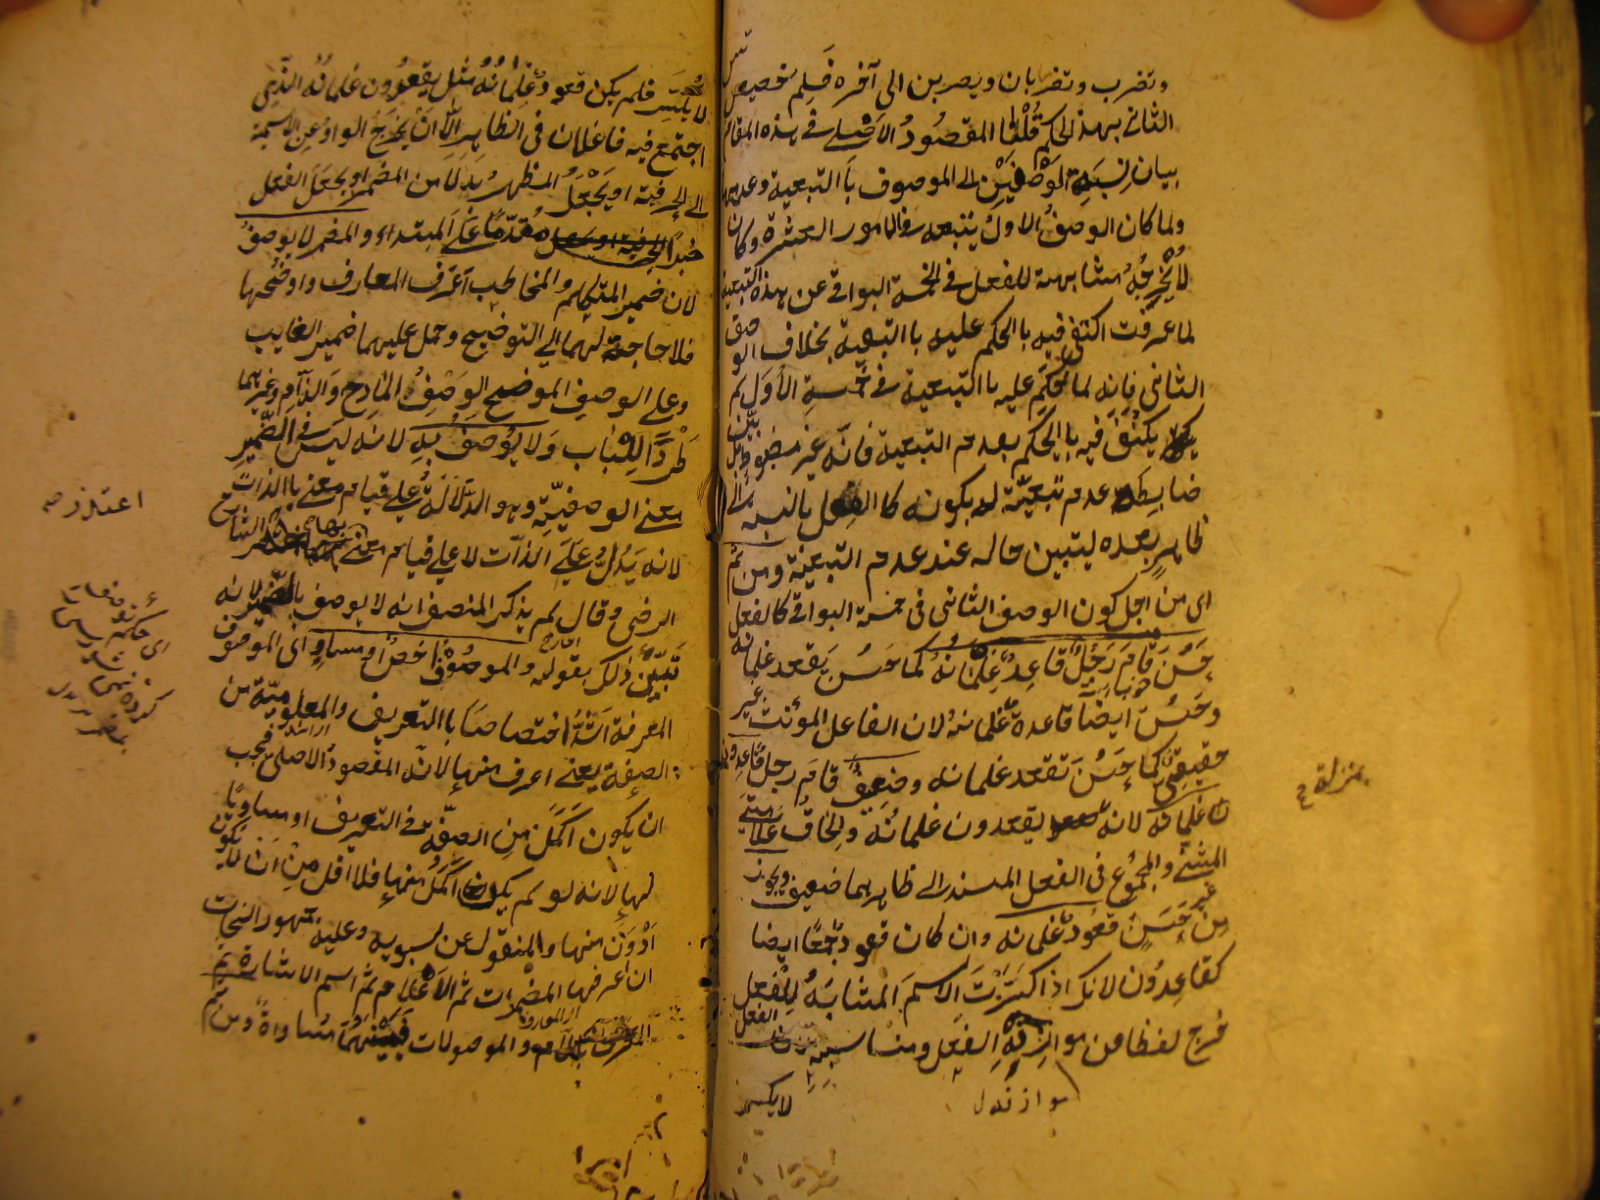 وتضرب وتضربان ويضربن الى آخره فلم خصيص
الثانى بهذ الحكم قُلْنا المقصُودُ الاصلى فى هذه المقام
بيان نسبة الوَصْفَيْنِ الى الموصوف باالتبعية وعدمها
ولما كان الوصفُ الاولُ يتبعه فى الامور العشرة وكان
لا يُخْرِجُهُ مشابهته للفعل فى الخمسة البواقى عن هذه التبعية
لما عرّفت اكتفى فيه باالحكم عليه باالتبعيّة بخلاف الوصف
الثانى فانه لما حُكِمَ عليه باالتبعية فى خمسةِ الاُوَل لم
يكتف فيه باالحكم بعدم التبعية فانّه غير مضبوط بل بيّن
ضابطة عدم تبعيّته له بكونه كاالفعل بالنسبة الى
ظاهرٍ بعده ليتبين حاله عند عدم التبعيّة ومن ثَمَّ
اى من اجل كون الوصف الثانى فى خمسة البواقى كالفعل
حَسُنَ قامَ رَجُلٌ قاعِدٌ غِلْمانُهُ كما حَسُنَ يقعد غلمانه
وحَسُنَ ايضا قاعدة غُلمانهُ لان الفاعل المؤنث غير
حقيقىّ كما حَسُنَ تقعد غلمانه وضَعُفَ قامَ رجل قاعدو
ن غلمانه لانه يقعدون غلمانُه والحاق علامتى
المثنّى والمجمُوع فى الفعل المسند الى ظاهرهما ضعيف ويجوز
مِن غير حَسَنٍ قعُودٌ غلمانه وان كان قعود جَمْعًا ايضا
كقاعِدُون لانك اذا كسَّرْتَ الاِسمَ المشابهَ للفعل
خرج لفظا من موازنةِ الفِعْل ومناسبته لان الفعل
لا يكسّر
بمنزلة
موازنه
لا يُكسّر فلم يكن قعودٌ غِلْمانُهُ مثل يقعدُون غلمانُه الّذى
اجتمع فيه فاعلان فى الظاهر الاّ انْ يخرج الواوُ عن الاسمية
الى الحرفية او يَجْعَلُ المظهر بدلا من المضمر او يجعل الفعل
خبرا مُقدّمًا على المبتداء والمضمر لا يوصفُ
لان ضمير المتكلم والمخاطب اعرف المعارف واوضحها
فلا حاجة لهما الى التوضيح وحمل عليهما ضمير الغايب
وعلى الوصف الموضح الوَصْفُ المادح والذامّ وغيرهما
طَرْدًا لِلْباب وَلا يُوصَفُ بهِ لانه ليسَ فى الضّميرِ
معنى الوصفيّة وهو الدلالَةُ على قيام معنى باالذات
لانه يَدُلُّ علَى الذات لا على قيام معنى بها
الرضى وقال لم يذكر المنصف انه لا يوصف بالضمير لانه
تَبيّن ذلك بقوله والموصُوْفُ اخصُّ او مساوٍ اى الموصوف
المعرفة اشدُّ اختصاصا باالتعريف والمعلوميّة من
الصفة يعنى اعرف منها لانّه المقصودُ الاصلى فيجب
ان يكون اكمَلَ مِن الصفّة فى التعريف او مساويًا
لها لانه لو لم يكن اكمَلَ منها فلا اقل مِن انْ لا يكون
اَدْوَنَ منها والمنقول عن سيبويه وعليه جمهور النحات
ان اعرفها المضمرات ثم الاَعْلام ثم اسم الاشارة ثم
المعرف باللام والموصولات فبَينهُمَا مُساواةٌ ومن ثَمَّ
اعتذر صه